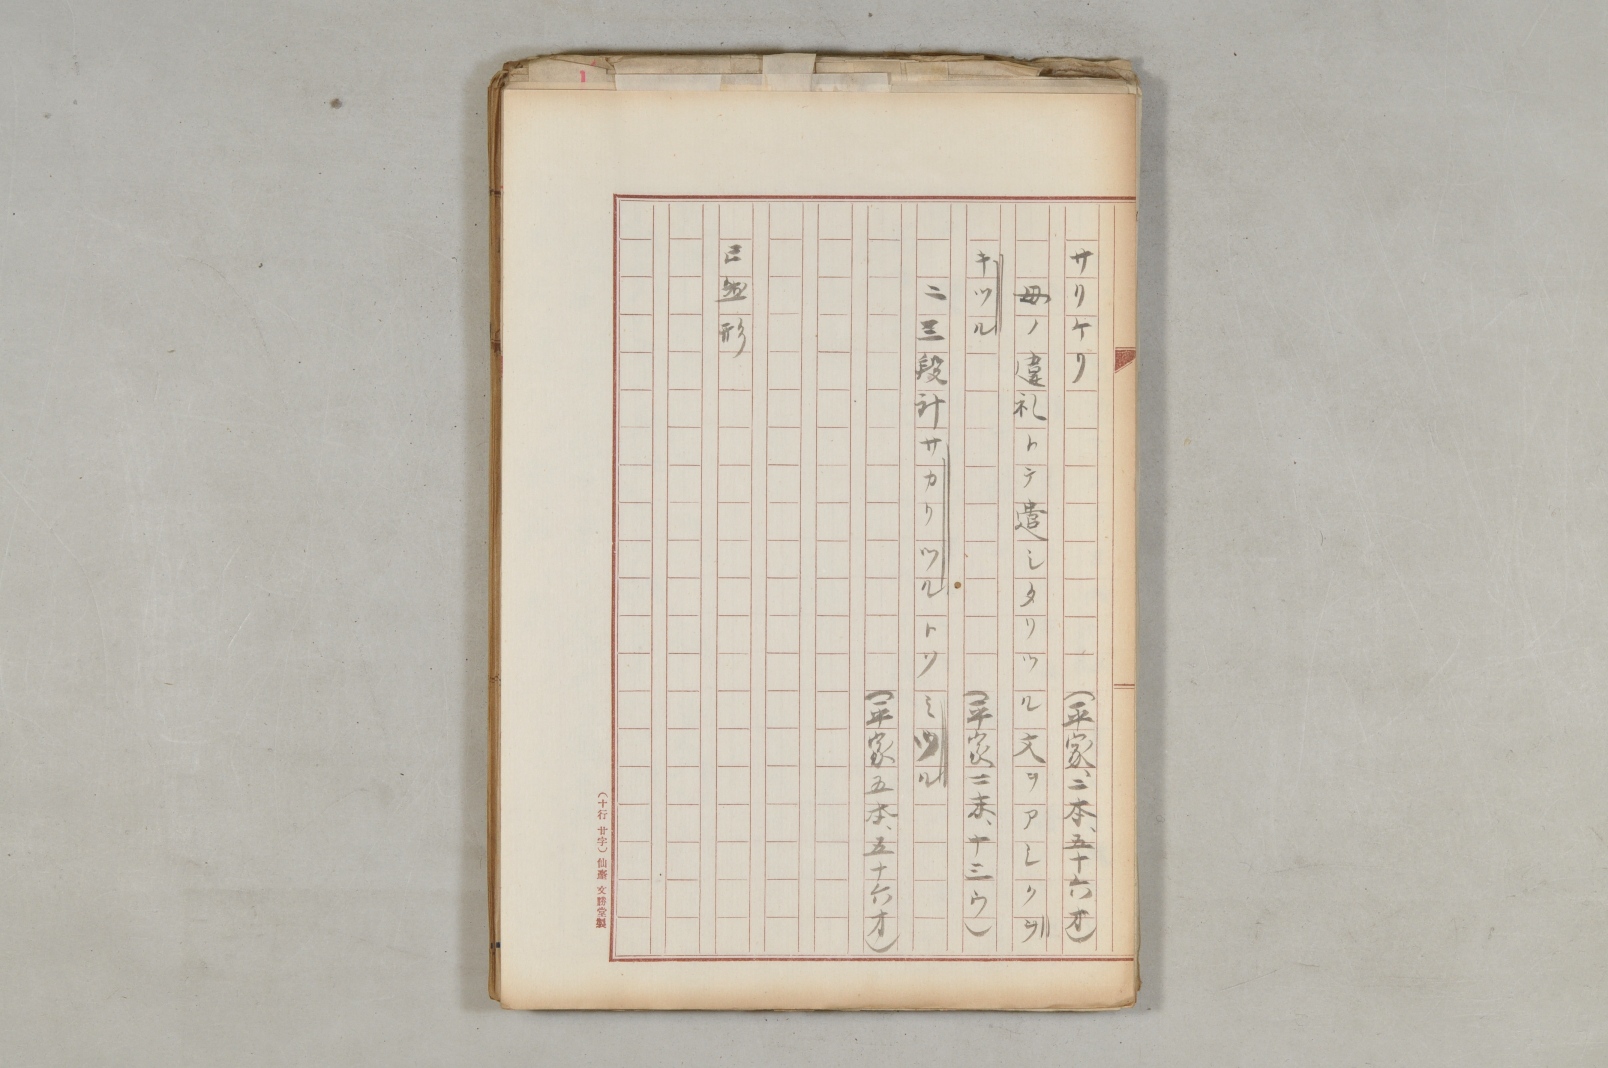 サリケリ　(平家、二本、五十六オ)
母ノ違礼トテ遣シタリツル文ヲアシクヲ
キツル　(平家二末、十三ウ)
二三段計サカリツルトツミツル
(平家五本、五十六オ)
已然形
(十行 廿字) 仙臺 文勝堂製